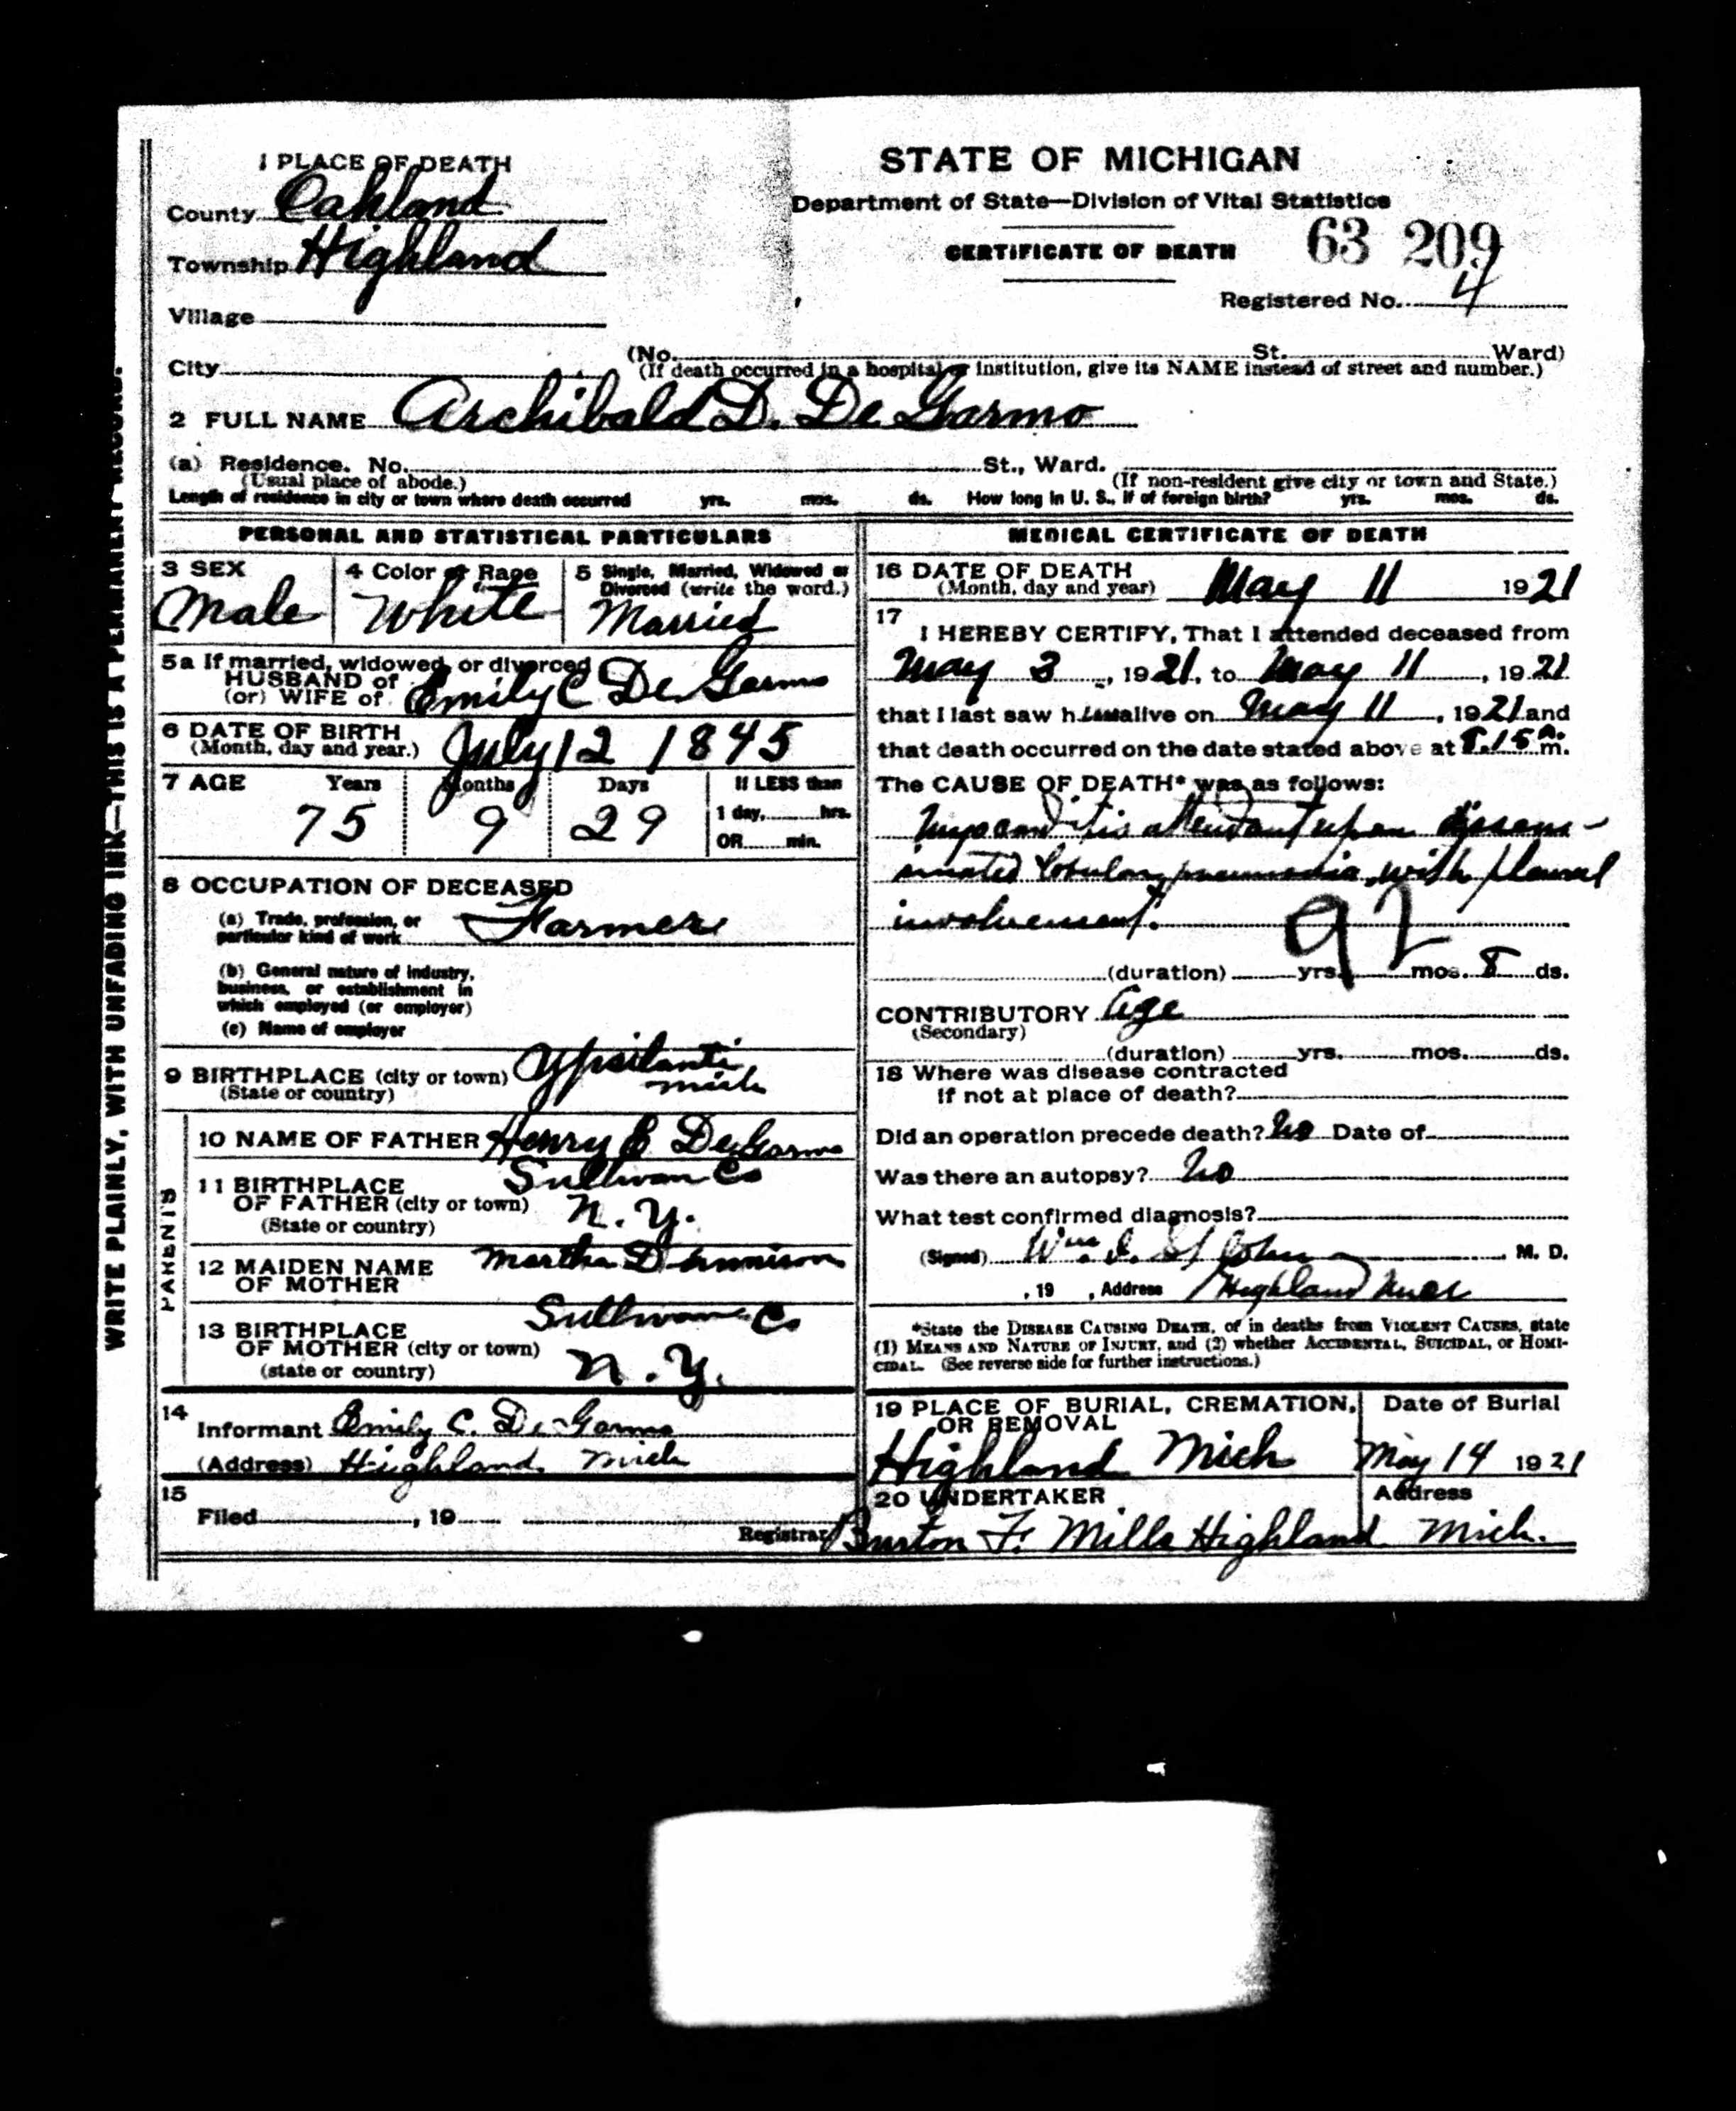 1 PLACE OF DEATH
County Oakland
Township Highland
Village
City
STATE OF MICHIGAN
Department of State—Division of Vital Statistics
CERTIFICATE OF DEATH
63 209
Registered No. 4
(No. St. Ward)
(If death occurred in a hospital or institution, give its NAME instead of street and number.)
2 FULL NAME Archibald D. De Garmo
(a) Residence. No. St., Ward.
(Usual place of abode.) (If non-resident give city or town and State.)
Length of residence in city or town where death occurred yrs. mos. ds. How long in U. S., if of foreign birth? yrs. mos. ds.
PERSONAL AND STATISTICAL PARTICULARS
3 SEX
Male
4 Color or Race
White
5 Single, Married, Widowed or
Divorced (write the word.)
Married
5a If married, widowed, or divorced
HUSBAND of
(or) WIFE of Emily C De Garmo
6 DATE OF BIRTH
(Month, day and year.) July 12 1845
7 AGE Years Months Days If LESS than
75 9 29 1 day, hrs.
OR min.
8 OCCUPATION OF DECEASED
(a) Trade, profession, or
particular kind of work Farmer
(b) General nature of industry,
business, or establishment in
which employed (or employer)
(c) Name of employer
9 BIRTHPLACE (city or town) Ypsilanti
(State or country) Mich
PARENTS
10 NAME OF FATHER Henry E DeGarmo
11 BIRTHPLACE Sullivan Co
OF FATHER (city or town)
(State or country) N. Y.
12 MAIDEN NAME Martha Dennison
OF MOTHER
13 BIRTHPLACE Sullivan Co
OF MOTHER (city or town)
(state or country) N. Y.
14
Informant Emily C. De Garmo
(Address) Highland Mich
15
Filed , 19
Registrar
MEDICAL CERTIFICATE OF DEATH
16 DATE OF DEATH
(Month, day and year) May 11 1921
17
I HEREBY CERTIFY, That I attended deceased from
May 3 , 1921, to May 11 , 1921
that I last saw him alive on May 11 , 1921 and
that death occurred on the date stated above at 8.15 A. m.
The CAUSE OF DEATH* was as follows:
Myocarditis attendant upon dissem-
inated lobular pneumonia, with pleural
involvement.
92
(duration) yrs. mos. 8 ds.
CONTRIBUTORY Age
(Secondary)
(duration) yrs. mos. ds.
18 Where was disease contracted
if not at place of death?
Did an operation precede death? No Date of
Was there an autopsy? No
What test confirmed diagnosis?
(Signed) Wm. St John M. D.
, 19 , Address Highland Mich
*State the DISEASE CAUSING DEATH, or in deaths from VIOLENT CAUSES, state
(1) MEANS AND NATURE OF INJURY, and (2) whether ACCIDENTAL, SUICIDAL, or HOMI-
CIDAL. (See reverse side for further instructions.)
19 PLACE OF BURIAL, CREMATION,
OR REMOVAL
Highland Mich
Date of Burial
May 14 1921
20 UNDERTAKER Address
Burton F. Mills Highland Mich.
WRITE PLAINLY, WITH UNFADING INK—THIS IS A PERMANENT RECORD.